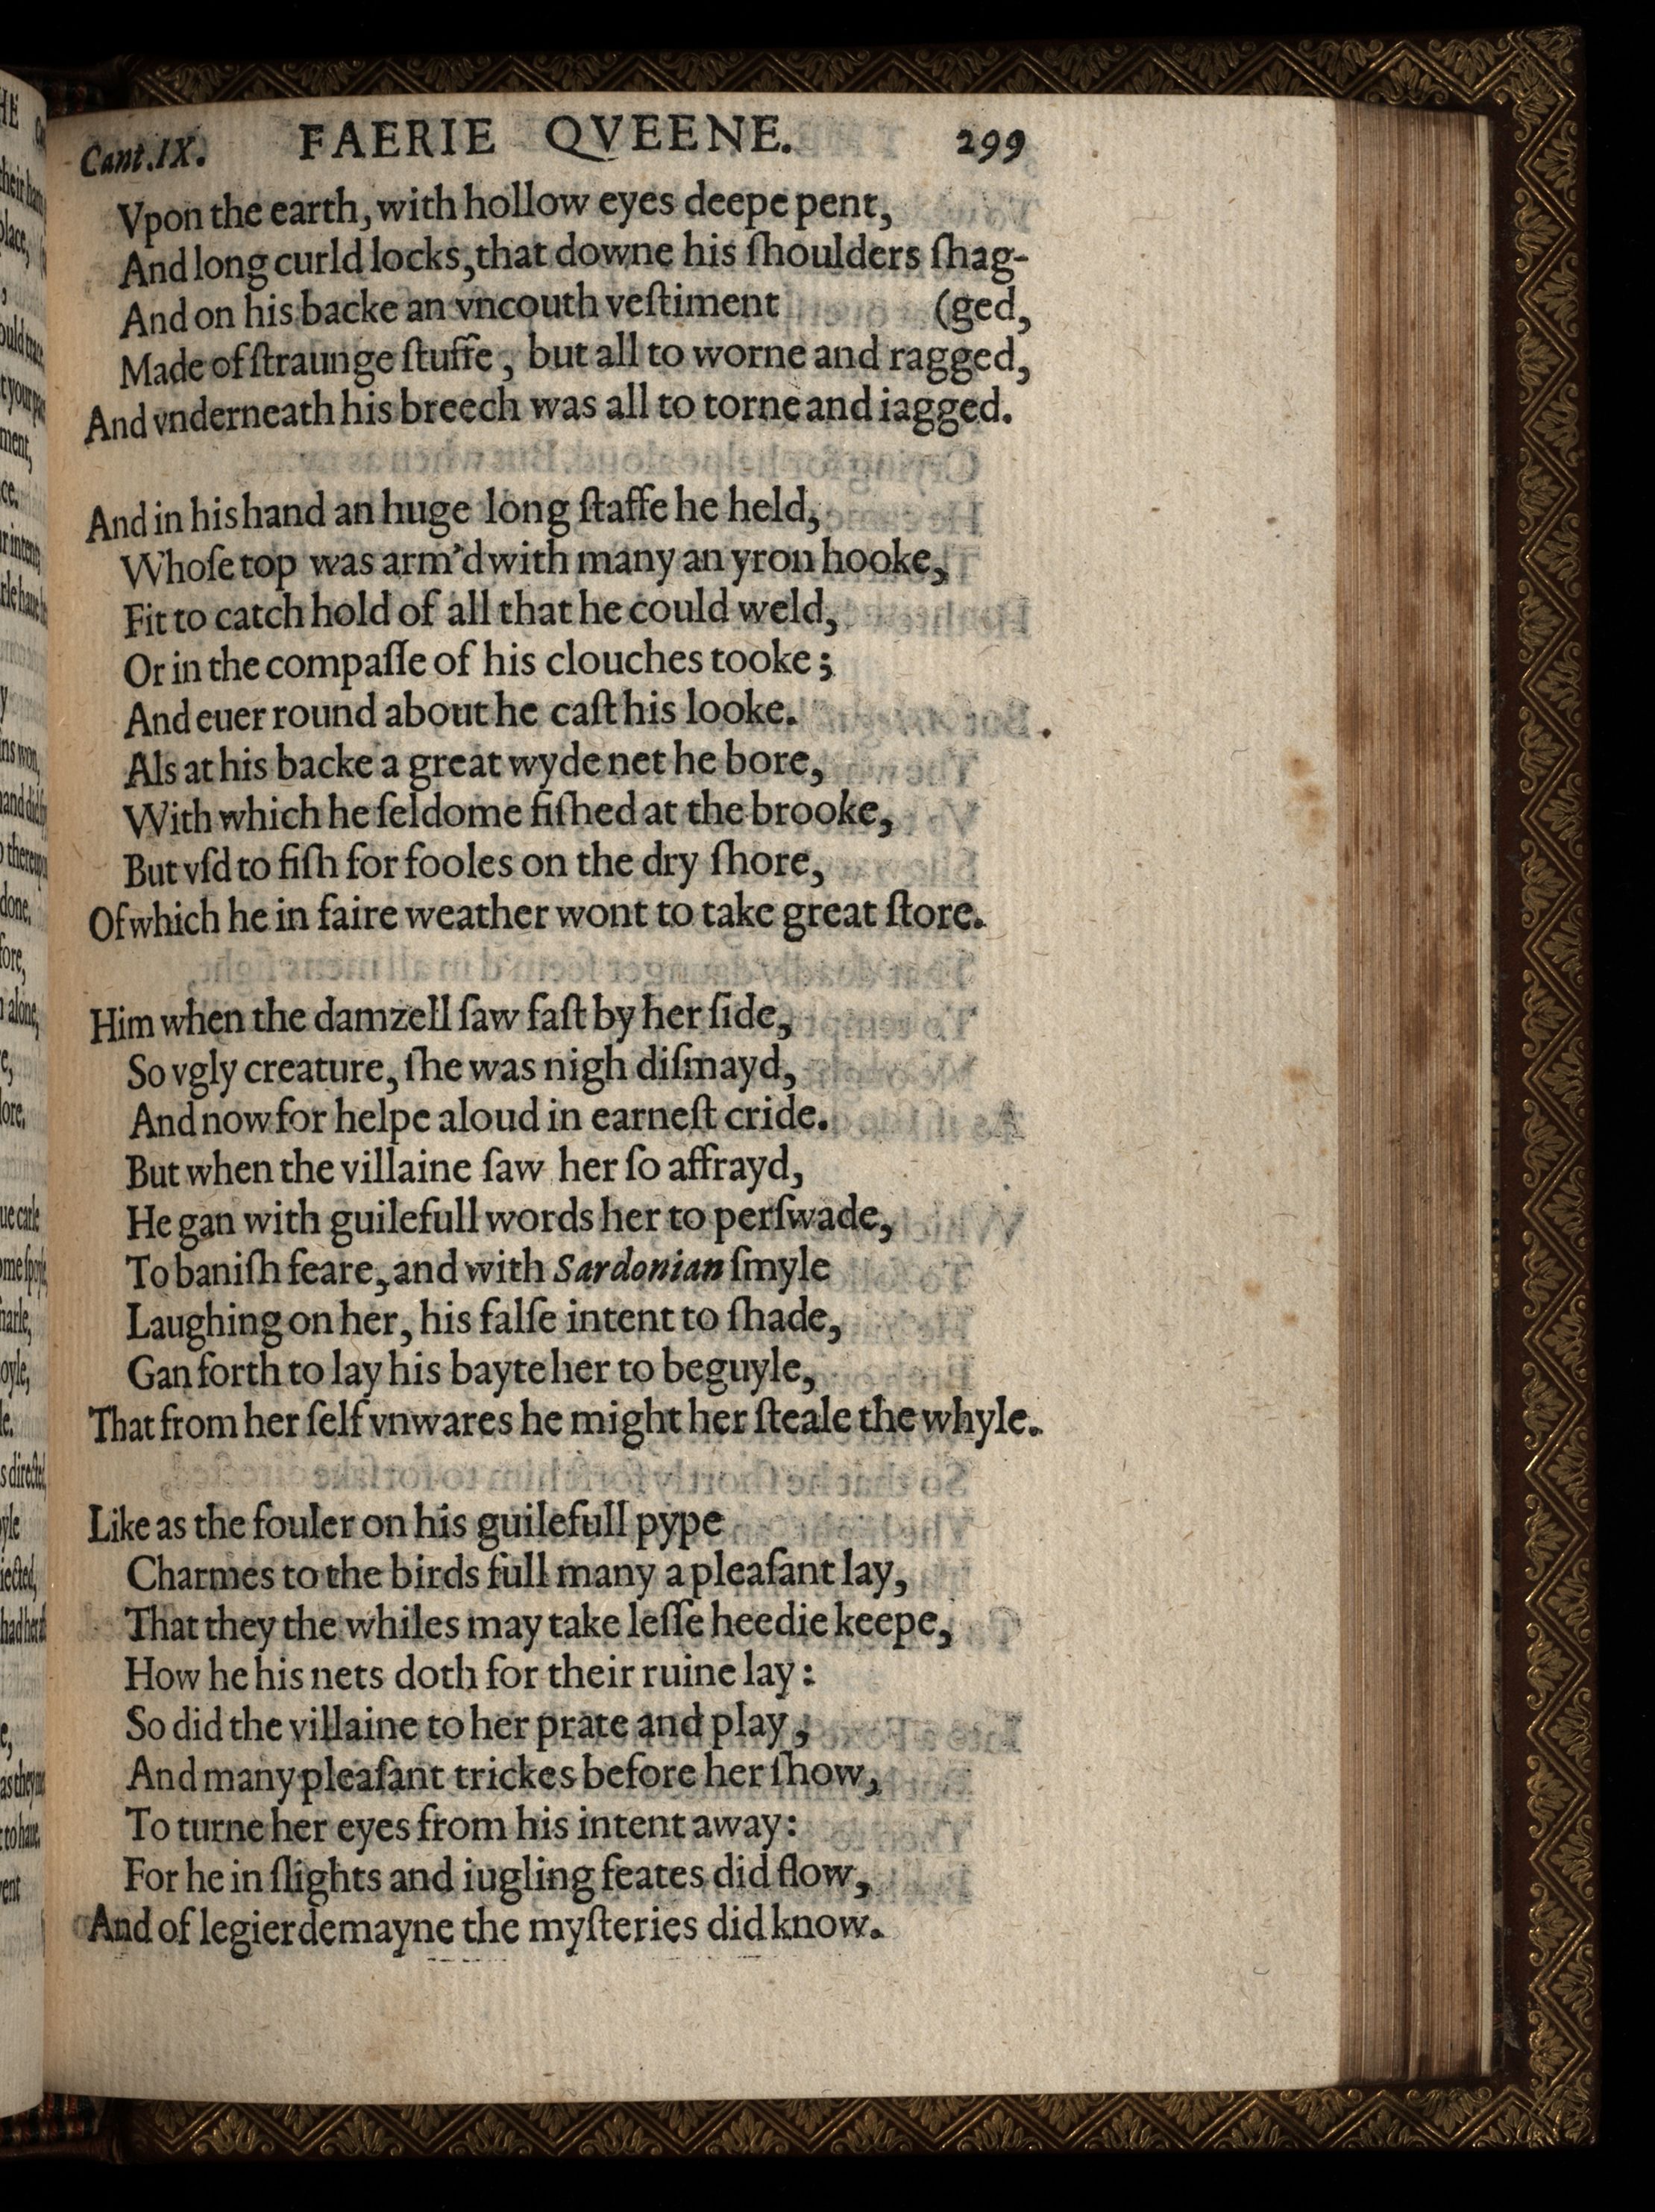 Cant.IX. FAERIE QVEENE. 299
Vpon the earth, with hollow eyes deepe pent,
And long curld locks, that downe his ſhoulders ſhag-
And on his backe an vncouth veſtiment (ged,
Made of ſtraunge ſtuffe, but all to worne and ragged,
And vnderneath his breech was all to torne and iagged.
And in his hand an huge long ſtaffe he held,
Whoſe top was arm'd with many an yron hooke,
Fit to catch hold of all that he could weld,
Or in the compaſſe of his clouches tooke;
And euer round about he caſt his looke.
Als at his backe a great wyde net he bore,
With which he ſeldome fiſhed at the brooke,
But vſd to fiſh for fooles on the dry ſhore,
Of which he in faire weather wont to take great ſtore.
Him when the damzell ſaw faſt by her ſide,
So vgly creature, ſhe was nigh diſmayd,
And now for helpe aloud in earneſt cride.
But when the villaine ſaw her ſo affrayd,
He gan with guilefull words her to perſwade,
To baniſh feare, and with Sardonian ſmyle
Laughing on her, his falſe intent to ſhade,
Gan forth to lay his bayte her to beguyle,
That from her ſelf vnwares he might her ſteale the whyle.
Like as the fouler on his guilefull pype
Charmes to the birds full many a pleaſant lay,
That they the whiles may take leſſe heedie keepe,
How he his nets doth for their ruine lay:
So did the villaine to her prate and play,
And many pleaſant trickes before her ſhow,
To turne her eyes from his intent away:
For he in ſlights and iugling feates did flow,
And of legierdemayne the myſteries did know.